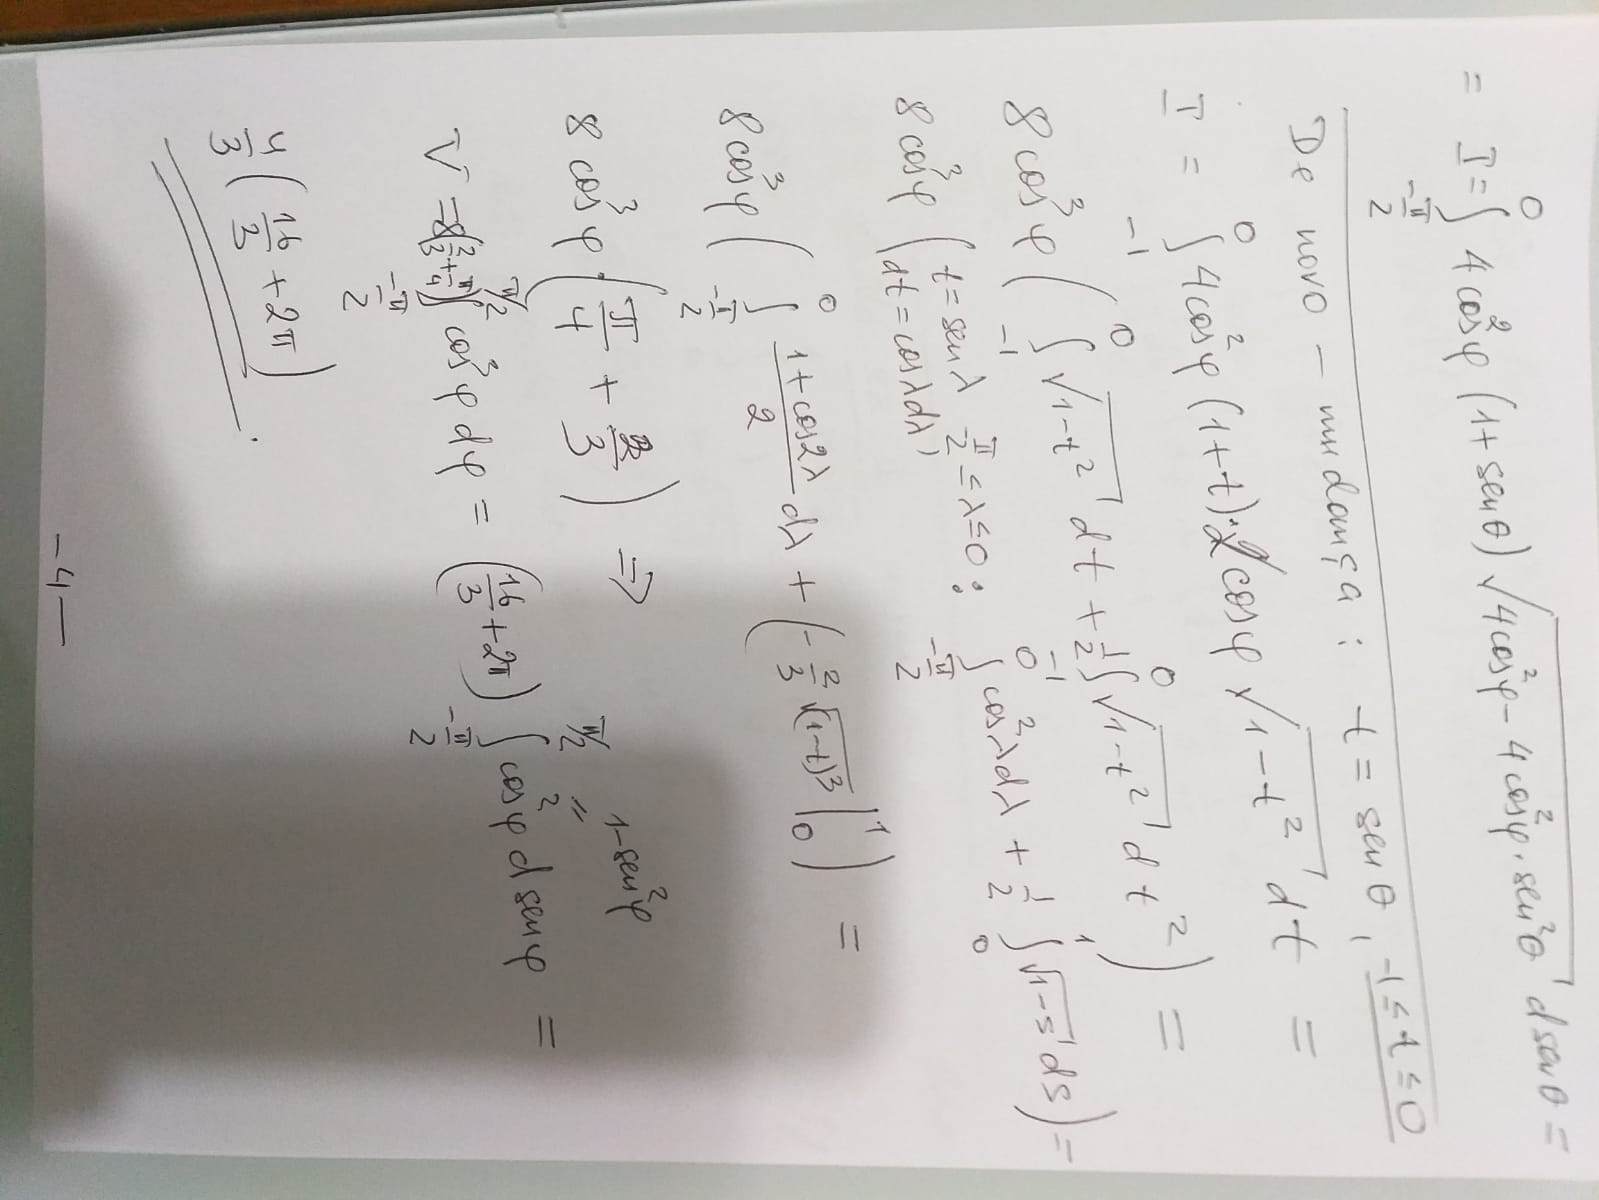 = I = ∫_{-π/2}^{0} 4cos²φ (1+senθ) √(4cos²φ - 4cos²φ·sen²θ) dsenθ =
De novo – mudança: t = senθ, -1 ≤ t ≤ 0
I = ∫_{-1}^{0} 4cos²φ (1+t)·2cosφ √(1-t²) dt =
8cos³φ ( ∫_{-1}^{0} √(1-t²) dt + 1/2 ∫_{-1}^{0} √(1-t²) dt² ) =
8cos³φ ( t = senλ -π/2 ≤ λ ≤ 0 : ∫_{-π/2}^{0} cos²λdλ + 1/2 ∫_{0}^{1} √(1-s) ds ) =
dt = cosλdλ
8cos³φ ( ∫_{-π/2}^{0} (1+cos2λ)/2 dλ + (-2/3 √(1-t)³ |_{0}^{1} ) =
8cos³φ ( π/4 + 2/3 ) ⇒
V = 8(2/3 + π/4) ∫_{-π/2}^{π/2} cos³φ dφ = (16/3 + 2π) ∫_{-π/2}^{π/2} cos²φ dsenφ =
= 1-sen²φ
4/3 (16/3 + 2π).
-4-